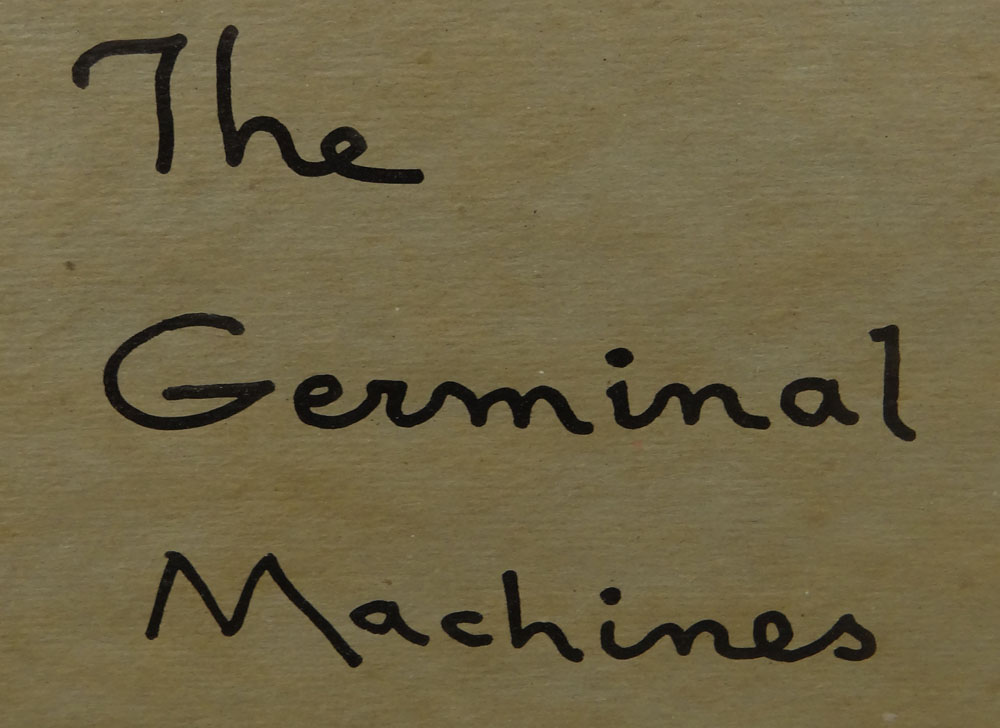 The
Germinal
Machines